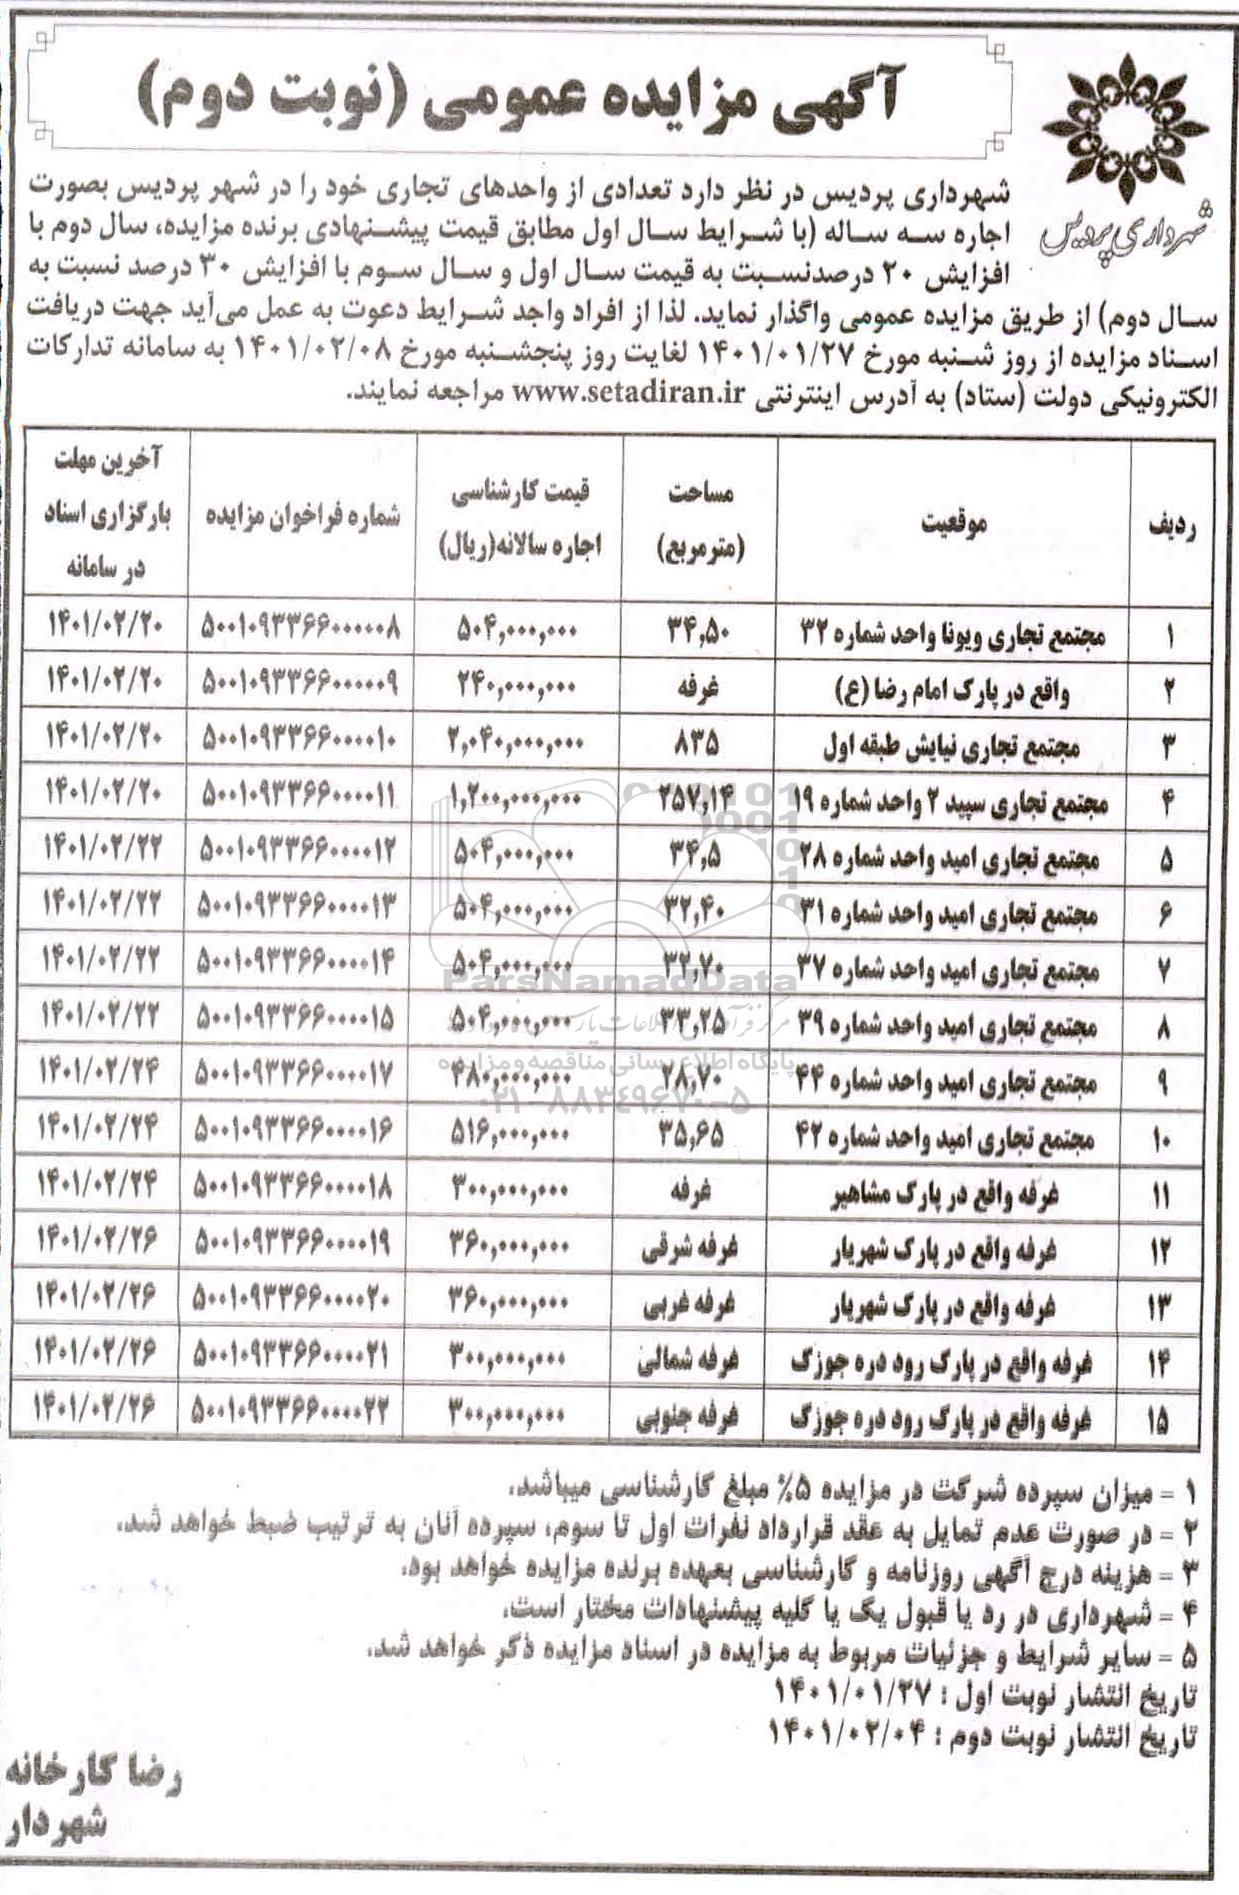 آگهی مزایده عمومی (نوبت دوم)
شهرداری پردیس
شهرداری پردیس در نظر دارد تعدادی از واحدهای تجاری خود را در شهر پردیس بصورت
اجاره سه ساله (با شرایط سال اول مطابق قیمت پیشنهادی برنده مزایده، سال دوم با
افزایش ۲۰ درصدنسبت به قیمت سال اول و سال سوم با افزایش ۳۰ درصد نسبت به
سال دوم) از طریق مزایده عمومی واگذار نماید. لذا از افراد واجد شرایط دعوت به عمل می‌آید جهت دریافت
اسناد مزایده از روز شنبه مورخ ۱۴۰۱/۰۱/۲۷ لغایت روز پنجشنبه مورخ ۱۴۰۱/۰۲/۰۸ به سامانه تدارکات
الکترونیکی دولت (ستاد) به آدرس اینترنتی www.setadiran.ir مراجعه نمایند.
ردیف | موقعیت | مساحت (مترمربع) | قیمت کارشناسی اجاره سالانه(ریال) | شماره فراخوان مزایده | آخرین مهلت بارگزاری اسناد در سامانه
۱ | مجتمع تجاری ویونا واحد شماره ۳۲ | ۳۴,۵۰ | ۵۰۴,۰۰۰,۰۰۰ | ۵۰۰۱۰۹۳۳۶۶۰۰۰۰۰۸ | ۱۴۰۱/۰۲/۲۰
۲ | واقع در پارک امام رضا (ع) | غرفه | ۲۴۰,۰۰۰,۰۰۰ | ۵۰۰۱۰۹۳۳۶۶۰۰۰۰۰۹ | ۱۴۰۱/۰۲/۲۰
۳ | مجتمع تجاری نیایش طبقه اول | ۸۳۵ | ۲,۰۴۰,۰۰۰,۰۰۰ | ۵۰۰۱۰۹۳۳۶۶۰۰۰۰۱۰ | ۱۴۰۱/۰۲/۲۰
۴ | مجتمع تجاری سپید ۲ واحد شماره ۱۹ | ۲۵۷,۱۴ | ۱,۲۰۰,۰۰۰,۰۰۰ | ۵۰۰۱۰۹۳۳۶۶۰۰۰۰۱۱ | ۱۴۰۱/۰۲/۲۰
۵ | مجتمع تجاری امید واحد شماره ۲۸ | ۳۴,۵ | ۵۰۴,۰۰۰,۰۰۰ | ۵۰۰۱۰۹۳۳۶۶۰۰۰۰۱۲ | ۱۴۰۱/۰۲/۲۲
۶ | مجتمع تجاری امید واحد شماره ۳۱ | ۳۲,۴۰ | ۵۰۴,۰۰۰,۰۰۰ | ۵۰۰۱۰۹۳۳۶۶۰۰۰۰۱۳ | ۱۴۰۱/۰۲/۲۲
۷ | مجتمع تجاری امید واحد شماره ۳۷ | ۳۲,۷۰ | ۵۰۴,۰۰۰,۰۰۰ | ۵۰۰۱۰۹۳۳۶۶۰۰۰۰۱۴ | ۱۴۰۱/۰۲/۲۲
۸ | مجتمع تجاری امید واحد شماره ۳۹ | ۳۳,۲۵ | ۵۰۴,۰۰۰,۰۰۰ | ۵۰۰۱۰۹۳۳۶۶۰۰۰۰۱۵ | ۱۴۰۱/۰۲/۲۲
۹ | مجتمع تجاری امید واحد شماره ۴۴ | ۲۸,۷۰ | ۴۸۰,۰۰۰,۰۰۰ | ۵۰۰۱۰۹۳۳۶۶۰۰۰۰۱۷ | ۱۴۰۱/۰۲/۲۴
۱۰ | مجتمع تجاری امید واحد شماره ۴۲ | ۳۵,۶۵ | ۵۱۶,۰۰۰,۰۰۰ | ۵۰۰۱۰۹۳۳۶۶۰۰۰۰۱۶ | ۱۴۰۱/۰۲/۲۴
۱۱ | غرفه واقع در پارک مشاهیر | غرفه | ۳۰۰,۰۰۰,۰۰۰ | ۵۰۰۱۰۹۳۳۶۶۰۰۰۰۱۸ | ۱۴۰۱/۰۲/۲۴
۱۲ | غرفه واقع در پارک شهریار | غرفه شرقی | ۳۶۰,۰۰۰,۰۰۰ | ۵۰۰۱۰۹۳۳۶۶۰۰۰۰۱۹ | ۱۴۰۱/۰۲/۲۶
۱۳ | غرفه واقع در پارک شهریار | غرفه غربی | ۳۶۰,۰۰۰,۰۰۰ | ۵۰۰۱۰۹۳۳۶۶۰۰۰۰۲۰ | ۱۴۰۱/۰۲/۲۶
۱۴ | غرفه واقع در پارک رود دره جوزک | غرفه شمالی | ۳۰۰,۰۰۰,۰۰۰ | ۵۰۰۱۰۹۳۳۶۶۰۰۰۰۲۱ | ۱۴۰۱/۰۲/۲۶
۱۵ | غرفه واقع در پارک رود دره جوزک | غرفه جنوبی | ۳۰۰,۰۰۰,۰۰۰ | ۵۰۰۱۰۹۳۳۶۶۰۰۰۰۲۲ | ۱۴۰۱/۰۲/۲۶
ParsNamadData
پایگاه اطلاع رسانی مناقصه و مزایده
۰۲۱-۸۸۳۴۹۶۷۰-۵
۱ = میزان سپرده شرکت در مزایده ۵٪ مبلغ کارشناسی میباشد.
۲ = در صورت عدم تمایل به عقد قرارداد نفرات اول تا سوم، سپرده آنان به ترتیب ضبط خواهد شد.
۳ = هزینه درج آگهی روزنامه و کارشناسی بعهده برنده مزایده خواهد بود.
۴ = شهرداری در رد یا قبول یک یا کلیه پیشنهادات مختار است.
۵ = سایر شرایط و جزئیات مربوط به مزایده در اسناد مزایده ذکر خواهد شد.
تاریخ انتشار نوبت اول : ۱۴۰۱/۰۱/۲۷
تاریخ انتشار نوبت دوم : ۱۴۰۱/۰۲/۰۴
رضا کارخانه
شهردار